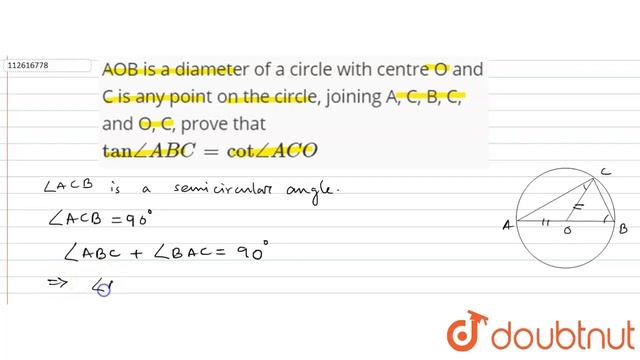 112616778
AOB is a diameter of a circle with centre O and
C is any point on the circle, joining A, C, B, C,
and O, C, prove that
tan∠ABC = cot∠ACO
∠ACB is a semicircular angle.
∠ACB = 90°
∠ABC + ∠BAC = 90°
⇒ ∠
C
A
O
B
doubtnut